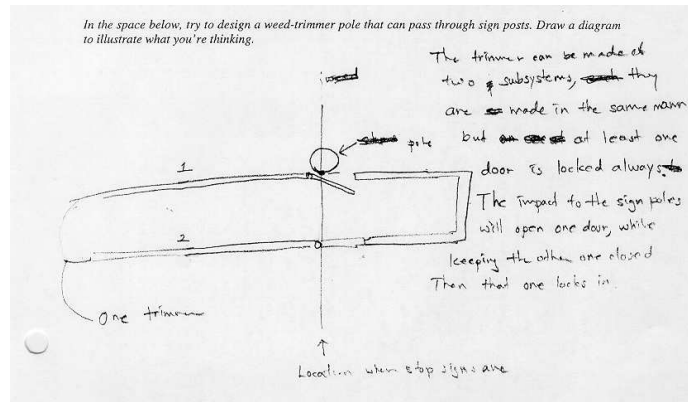 In the space below, try to design a weed-trimmer pole that can pass through sign posts. Draw a diagram
to illustrate what you're thinking.
The trimmer can be made of
two subsystems, they
are made in the same mann
but at least one
door is locked always
The impact to the sign poles
will open one door, while
keeping the other one closed
Then that one locks in.
pole
1
2
One trimmer
Location when stop signs are